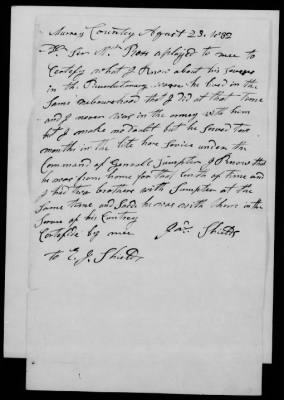 Murrey Countey Agust 23. 1832
Dr. Sir Nth. Ross aployed to mee to
Certefy what I Know about his servess
in the Revolutionary warr. he lived in the
Same neborwhood that I did at that time
and I never was in the armey with him
but I make no doubt but he served two
months in the lite hors service under the
Command of General Sumpter I Know that
he was from home for that limth of time and
I had two brothers with Sumpter at the
Same time and Said he was with them in the
Servs of his Contrey
Certefie by mee Jas. Shields
to E. J. Shields